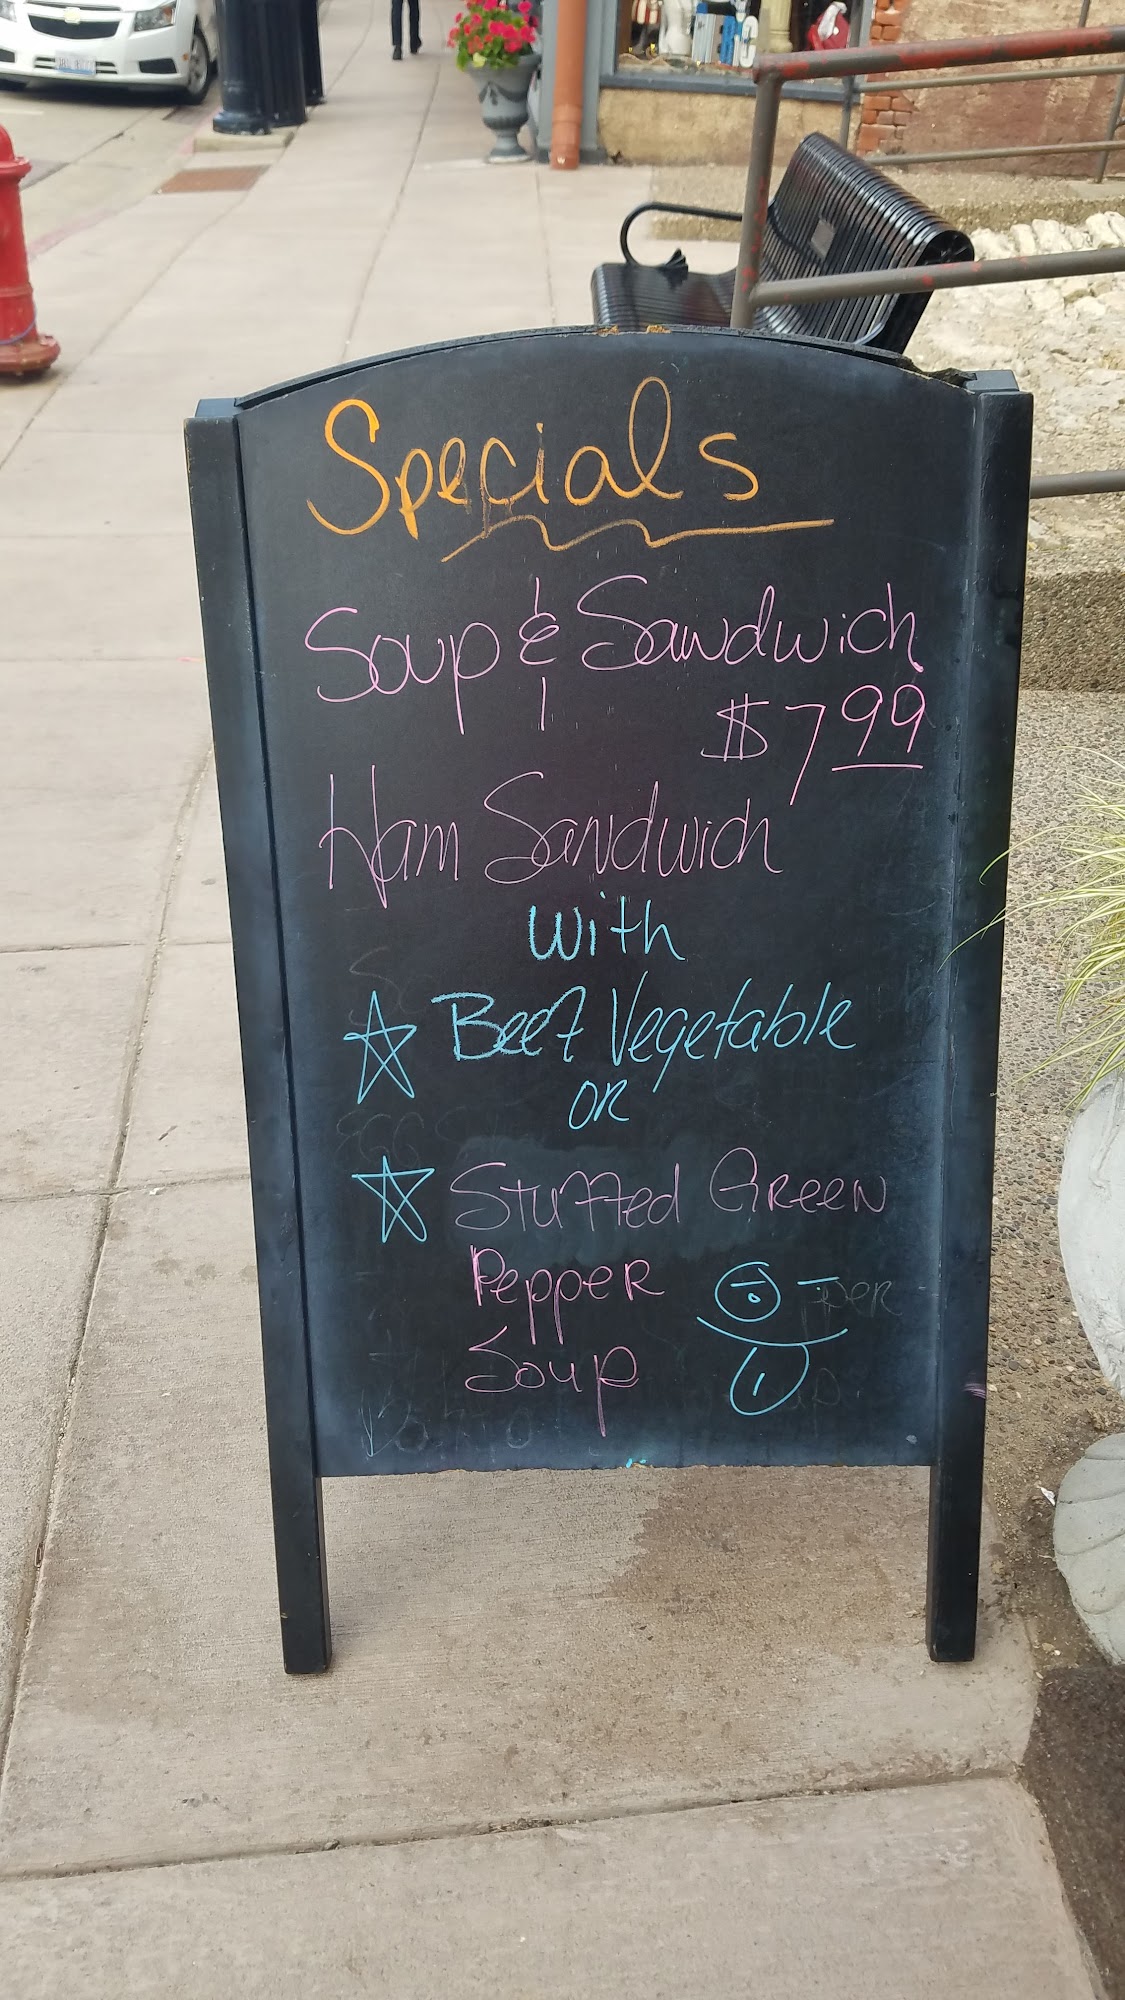 Specials
Soup & Sandwich
$7.99
Ham Sandwich
with
Beef Vegetable
OR
Stuffed Green
Pepper
Soup